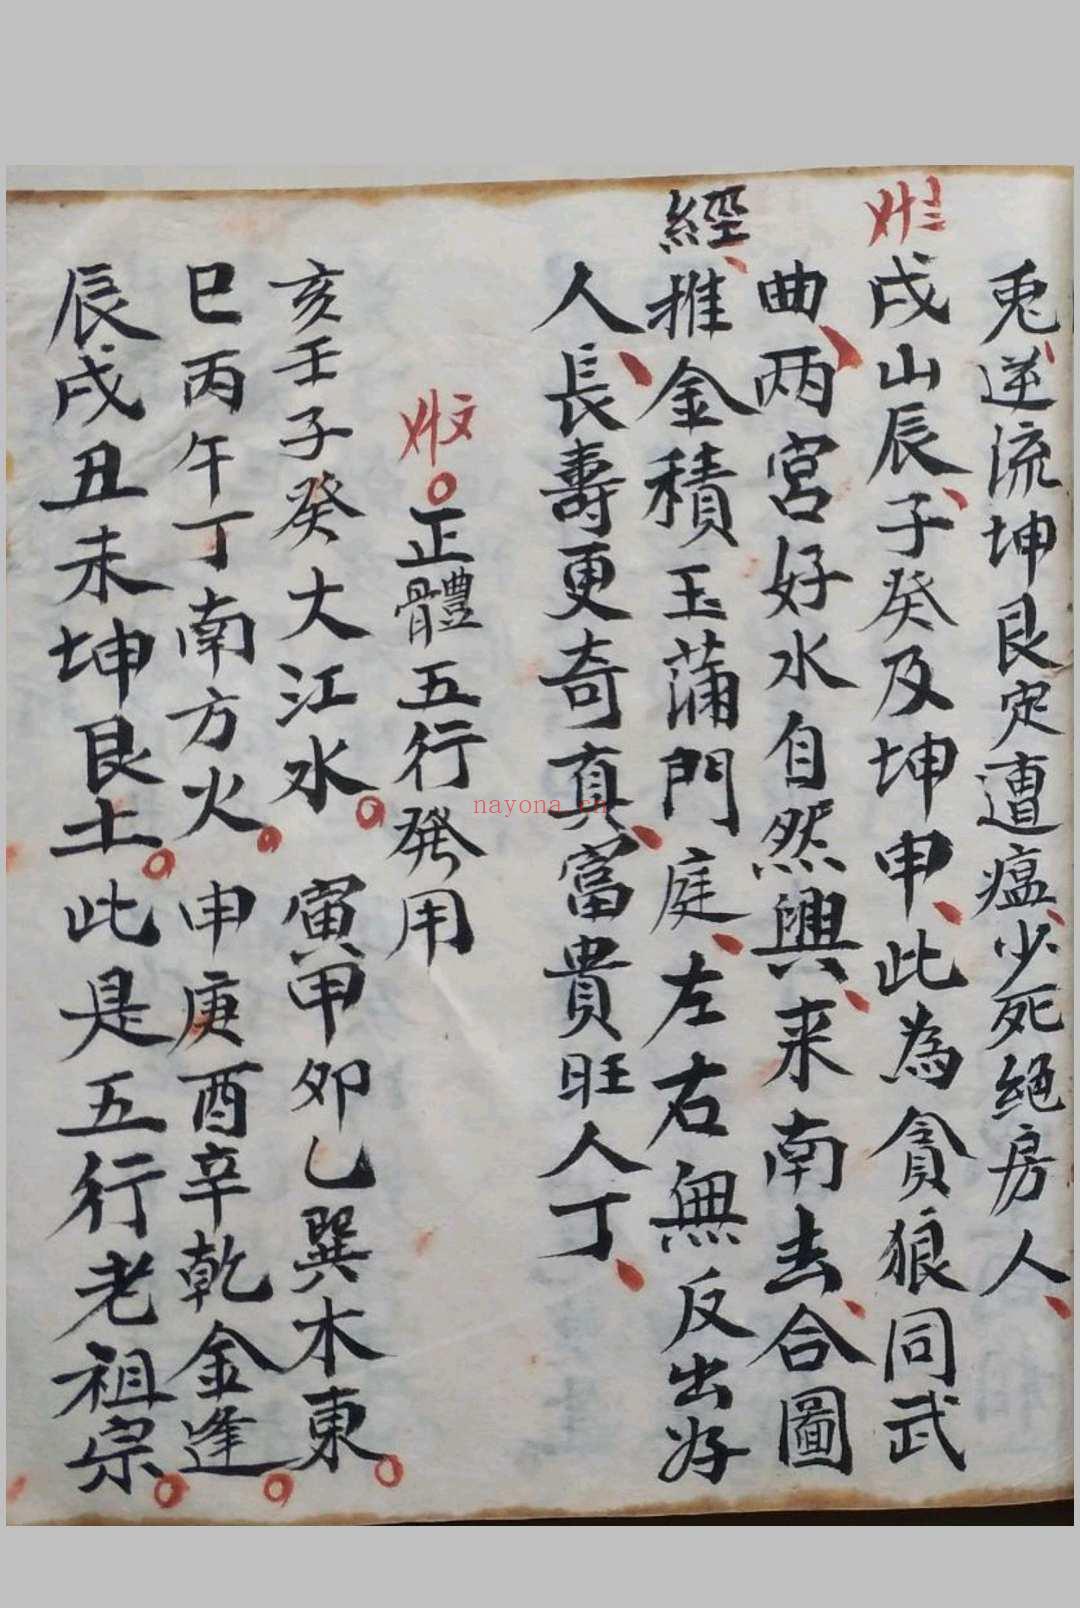 兎逆流坤艮定遭瘟少死絕房人
戌山辰子癸及坤申此為貪狼同武
曲两宮好水自然興来南去合圖
經推金積玉蒲門庭左右無反出好
人長壽更奇真富貴旺人丁
正體五行發用
亥壬子癸大江水寅甲卯乙巽木東
巳丙午丁南方火申庚酉辛乾金逢
辰戌丑未坤艮土此是五行老祖宗
nayona.cn